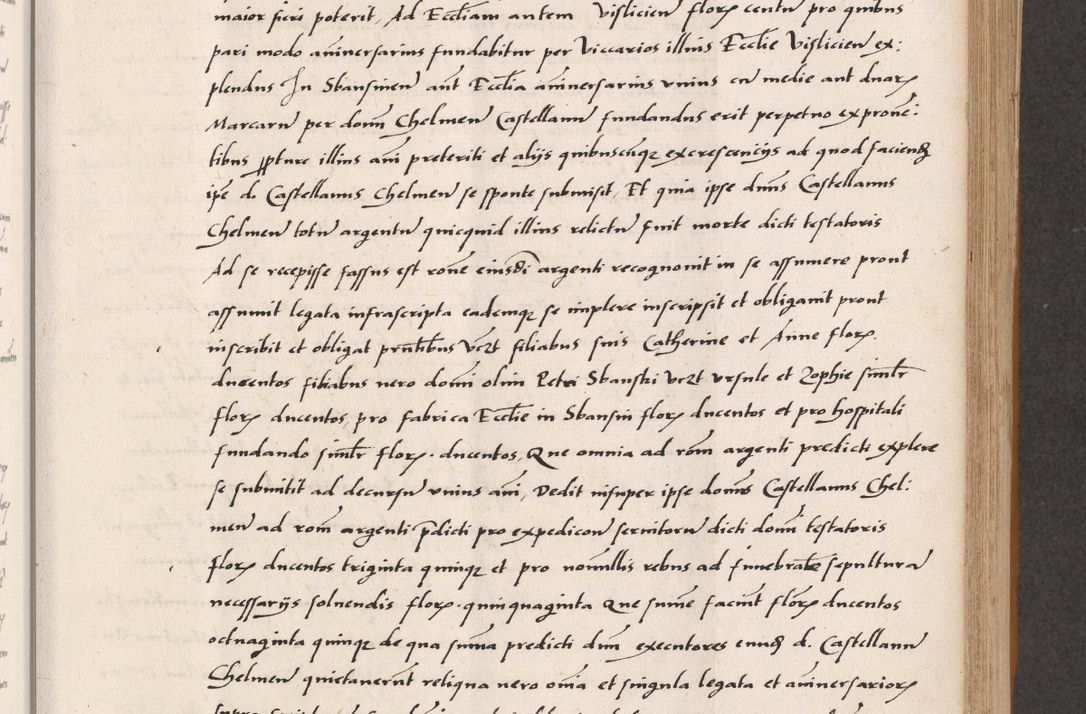 maior fieri poterit, Ad Eccliam autem Vislicien florꝫ centu pro quibus
pari modo aniversarius fundabitur per Viccarios illius Ecclie Vislicien ex:
plendus In Sbansinen aut Ecclia aniversarius unius cu medie aut duarꝫ
Marcaru per domi Chelmen Castellanu fundandus erit perpetuo ex prouẽ:
tibus illius ani preteriti et alijs quibuscuqꝫ excrescencijs ad quod faciend
ipe d. Castellanus Chelmen se sponte submisit, Et quia ipse dnus Castellanus
Chelmen totu argentu quicquid illius relictu fuit morte dicti testatoris
Ad se recepisse fassus est rone eiusdi argenti recognovit in se assumere prout
assumit legata infrascripta eademqꝫ se implere inscripsit et obligavit prout
inscribit et obligat pntibus vczt filiabus suis Catherine et Anne florꝫ.
ducentos filiabus vero domi olim Petri Sbanski vczt Ursule et Zophie similr
florꝫ ducentos, pro fabrica Ecclie in Sbansin florꝫ ducentos et pro hospitali
fundando similr florꝫ. ducentos, Que omnia ad rom argenti predicti explere
se submitit ad decursu unius ani, Dedit insuper ipse domns Castellanus Chel:
men ad rom argenti pdicti pro expedicon servitoru dicti domi testatoris
florꝫ ducentos triginta quinqꝫ et pro nonullis rebus ad funebrale sepultura
necessarijs solvendis florꝫ. quinquaginta Que sume faciut florꝫ ducentos
octuaginta quinqꝫ de qua suma predicti dni executores eund d. Castellanu
Chelmen quietaverut reliqua vero oia et singula legata et aniversariorꝫ